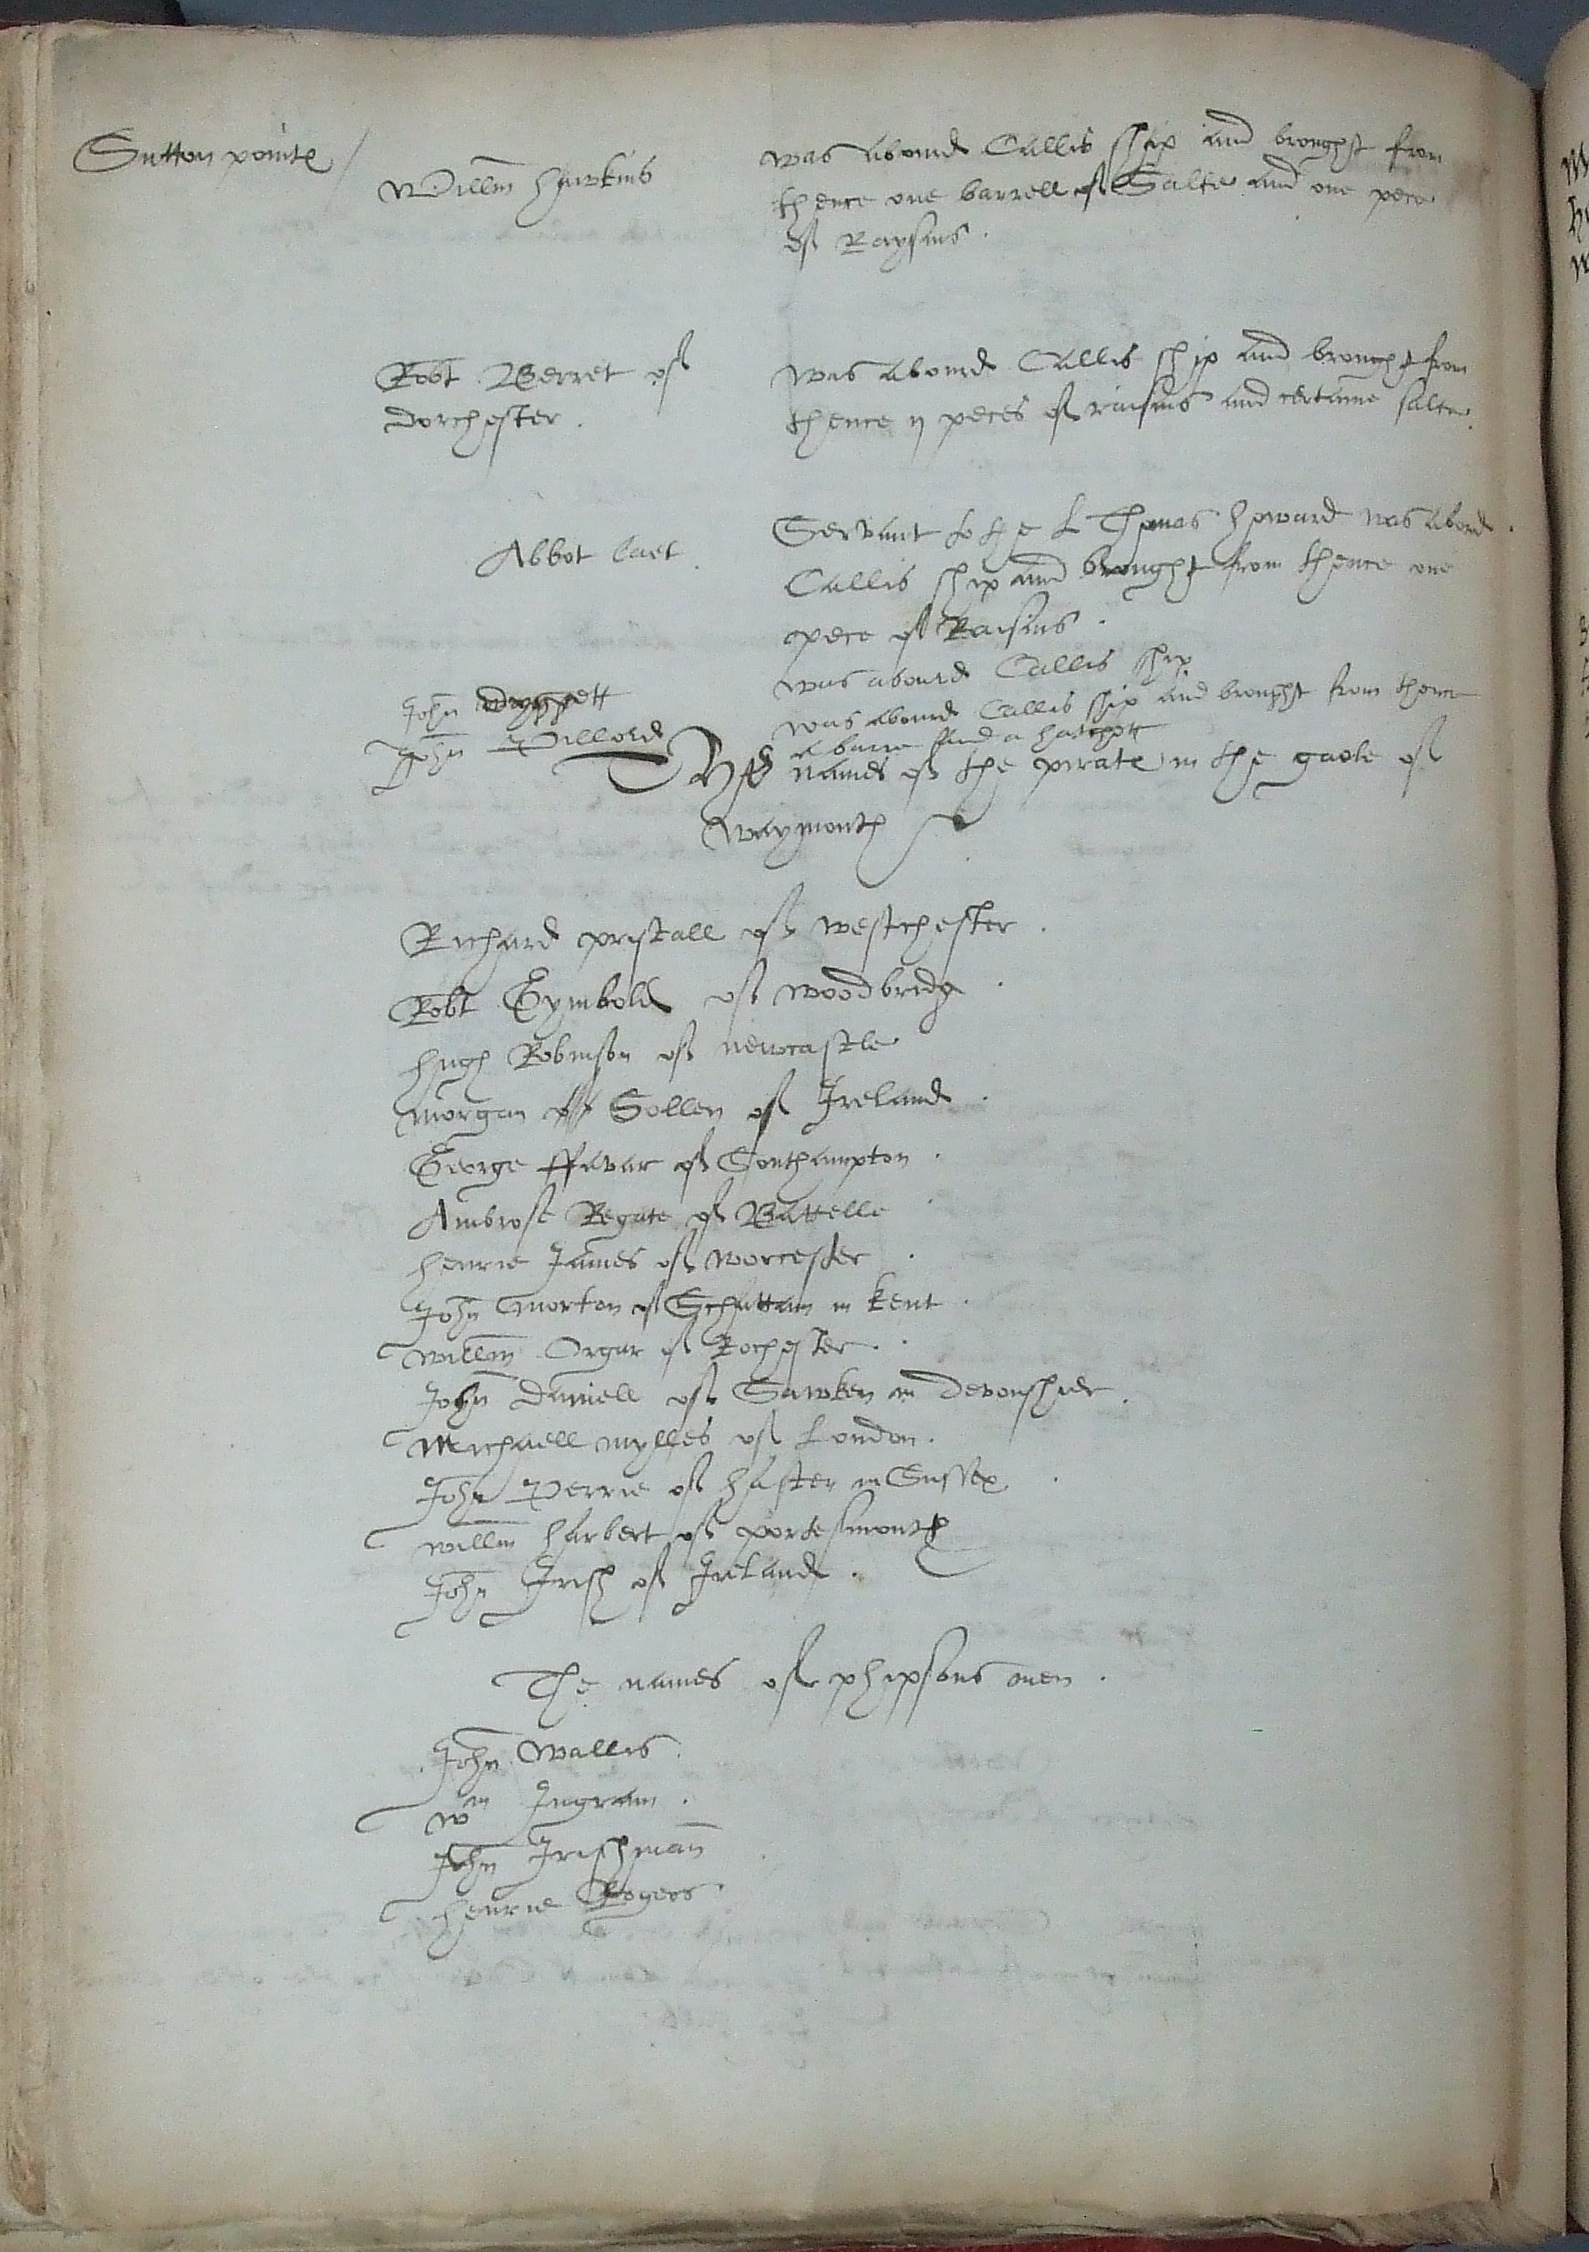 Sutton pointe /
Willm Hawkins
was abourd Callis ship and brought from
thence one barrell of Salte and one pece
of Raysins .
Robt Gerret of
Dorchester .
was abourd Callis ship and brought from
thence ij peces of raisins and certaine salte .
Abbot
Servant to the L Thomas Howard was abord
Callis ship and brought from thence one
pece of Raisins .
John
was abourd Callis ship
John Pillord
was abourd Callis ship and brought from thence
a barre and a hatchett
The names of the pirate in the gaole of
Waymouth
Richard pristall of westchester .
Robt Gymbold of woodbridg .
Hugh Robinson of newcastle
Morgan Sollen of Ireland .
George ffavar of Southampton .
Ambrose Regate of Battelle
Henrie James of worcester .
John Morton of Schattam in kent .
Willm Orgar of Rochester .
John Daniell of Sawken in Devonshier .
Michaell mylles of London .
John Perrie of Hasten in Sussex .
Willm Harbert of portesmouth
John Irish of Ireland .
The names of phipsons men .
John Wallis .
Wm Ingram .
John Irishman
Henrie Rogers .